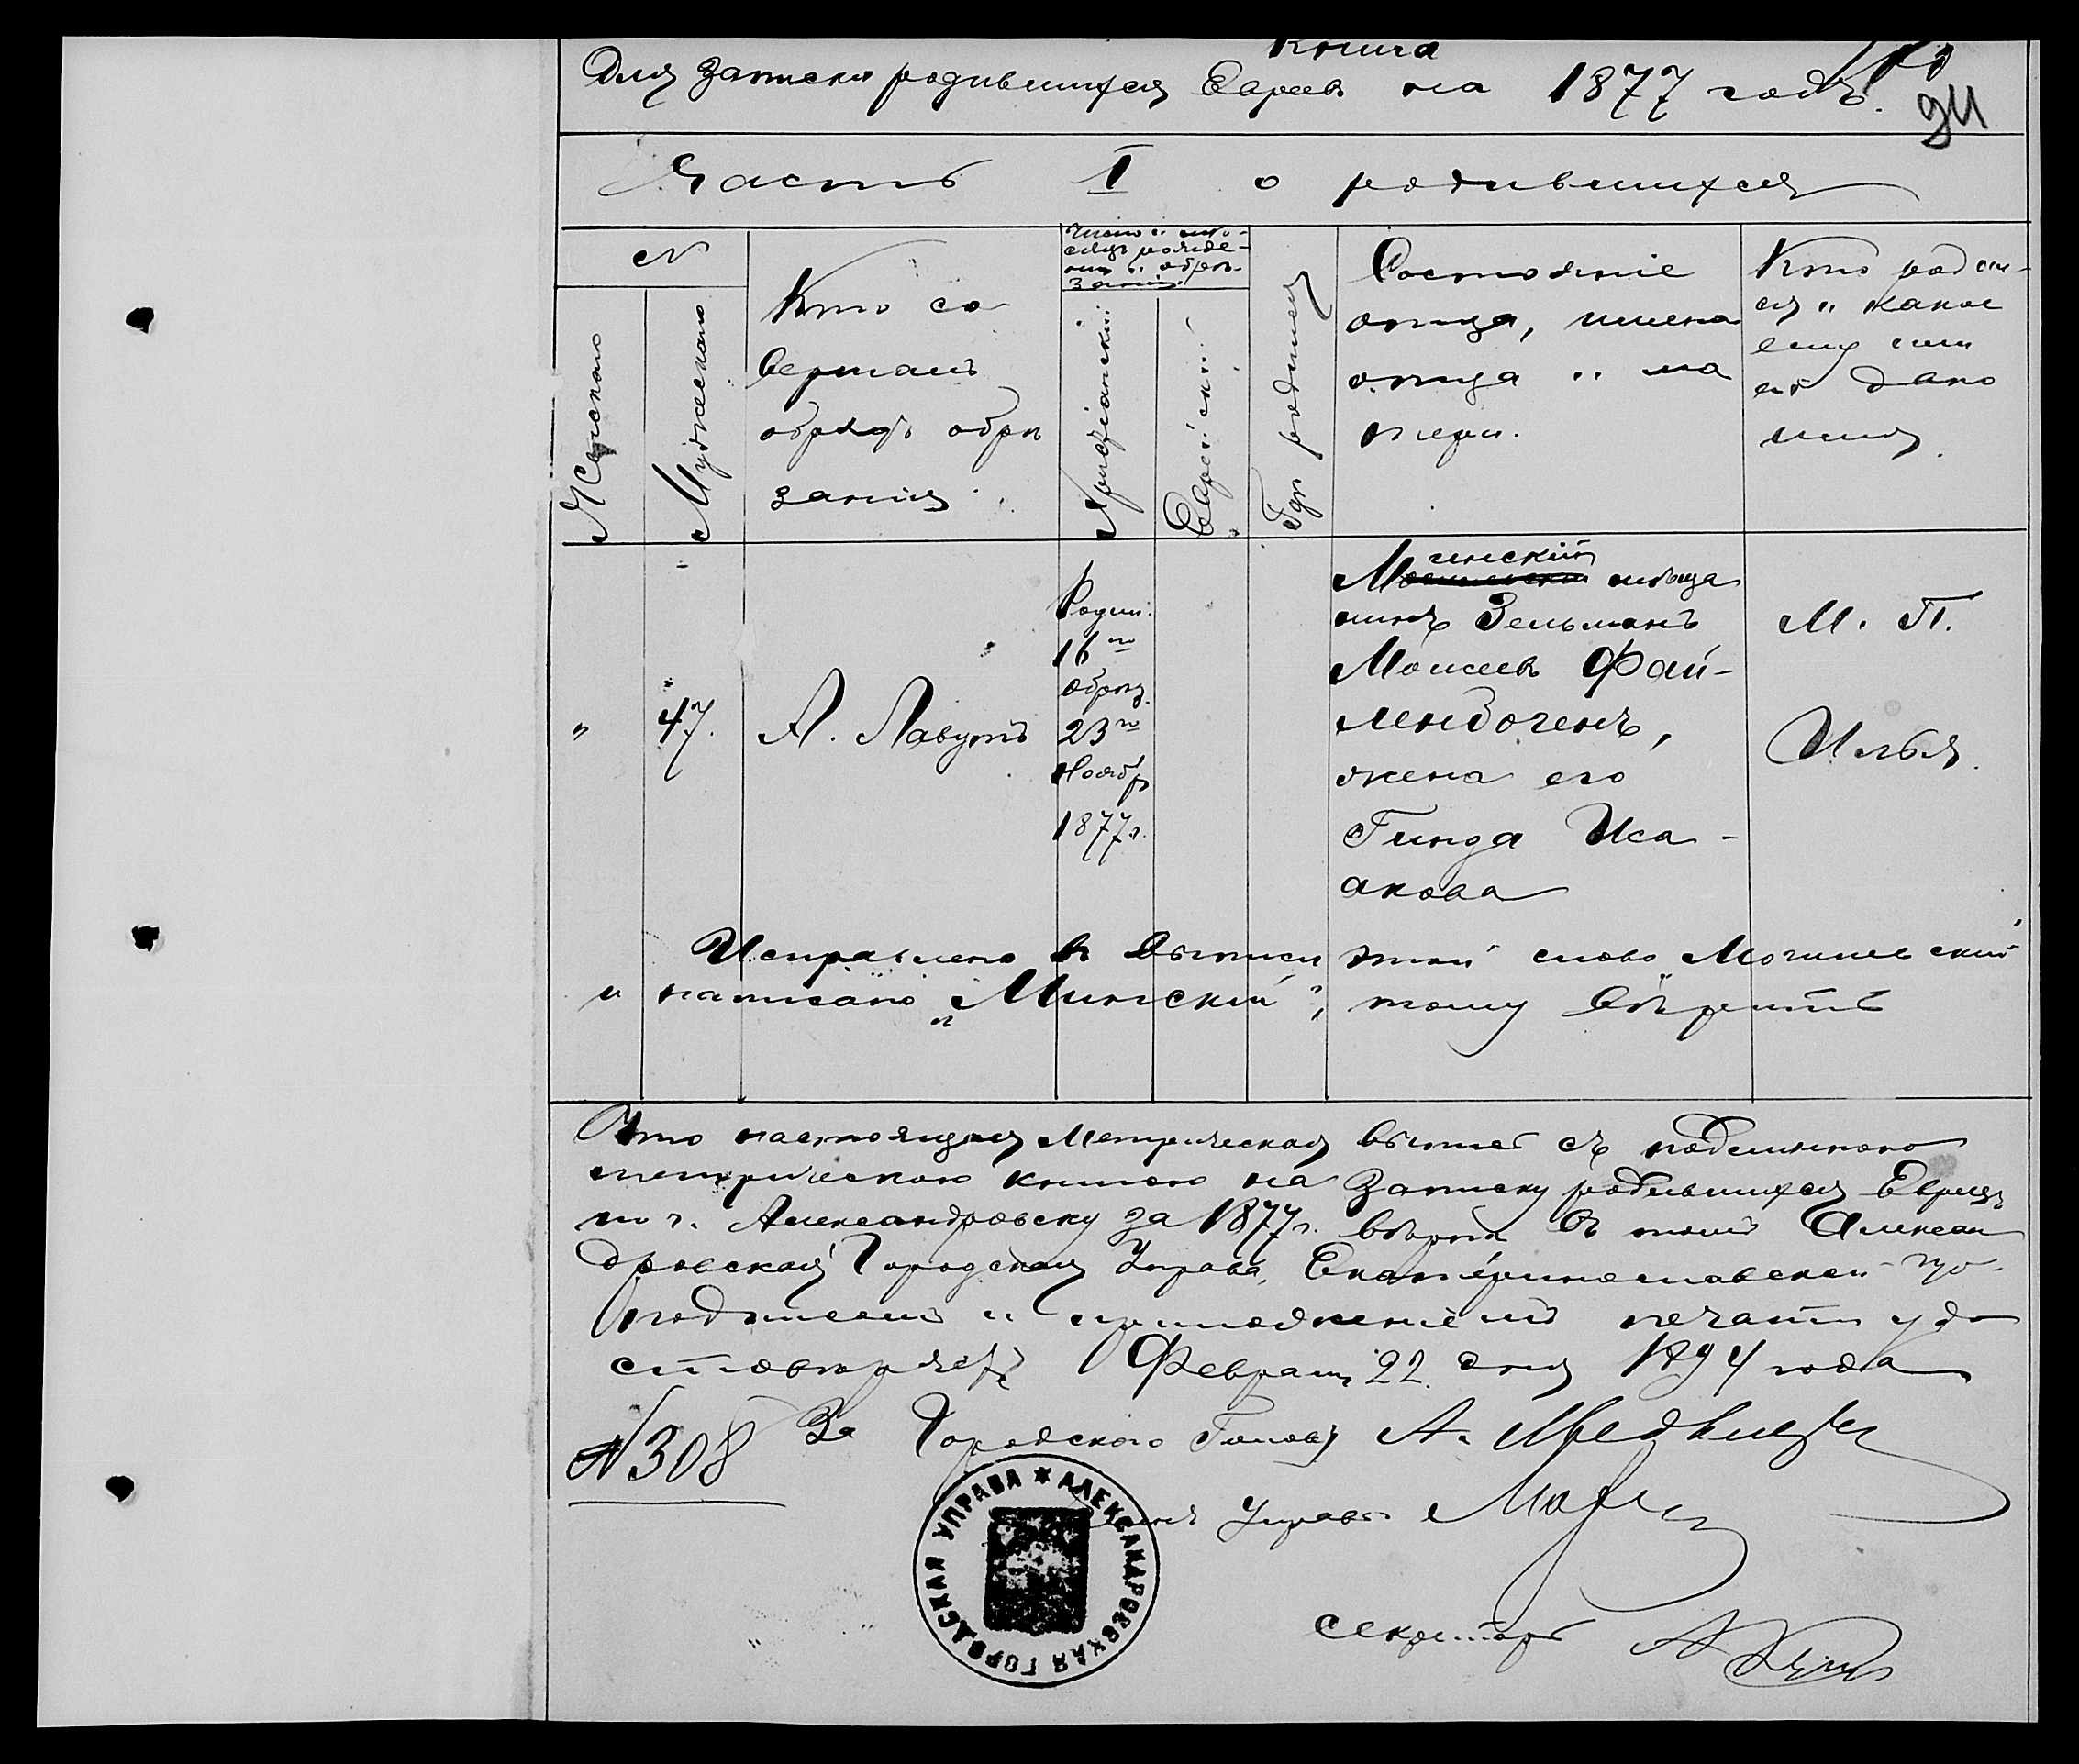 Книга
Для записки родившихся Евреевъ на 1877 годъ.
94
Часть I о родившихся
№
Женскаго
Мужескаго
Кто со
вершалъ
обрядъ обрѣ
занія
Число и мѣ-
сяцъ рожде-
нія и обрѣ-
занія
Христіанскій
Еврейскій
Гдѣ родился
Состояніе
отца, имена
отца и ма
тери.
Кто родил-
ся и какое
ему или
ей дано
имя.
"
47.
А. Лавутъ
Родил.
16го
обрѣз.
23го
Ноябр
1877г.
инскій
Могилевскій мѣща
нинъ Зельманъ
Моисеевъ Фай-
лендогенъ,
жена его
Гинда Иса-
акова
М. П.
Илья.
Исправлено въ выписи этой слово „Могилевскій"
и написано „Минскій", тому вѣрить
Что настоящая Метрическая выпись съ подлинною
метрическою книгою на записку родившихся Евреевъ
по г. Александровску за 1877г. вѣрна въ томъ Алексан
дровская Городская Управа, Екатеринославской гу.
подписомъ и приложеніемъ печати удо
стовѣряетъ Февраля 22 дня 1894 года
№308 За Городского Голову А.
Членъ Управы
Секретарь А
АЛЕКСАНДРОВСКАЯ ГОРОДСКАЯ УПРАВА